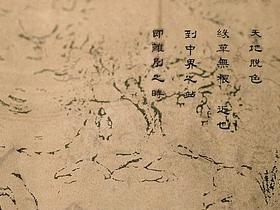 天地脱色
綠草無根 近也
到中界之站
即離別之時